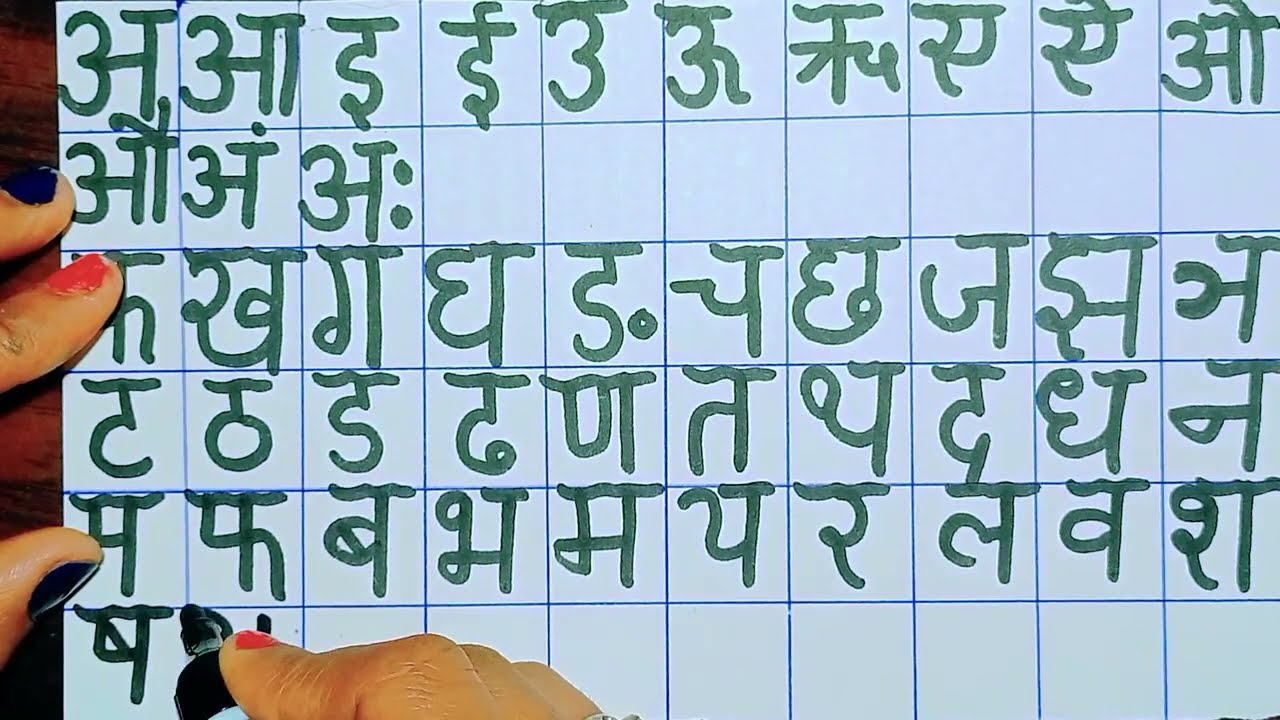 अ आ इ ई उ ऊ ऋ ए ऐ ओ
औ अं अः
क ख ग घ ङ च छ ज झ ञ
ट ठ ड ढ ण त थ द ध न
प फ ब भ म य र ल व श
ष